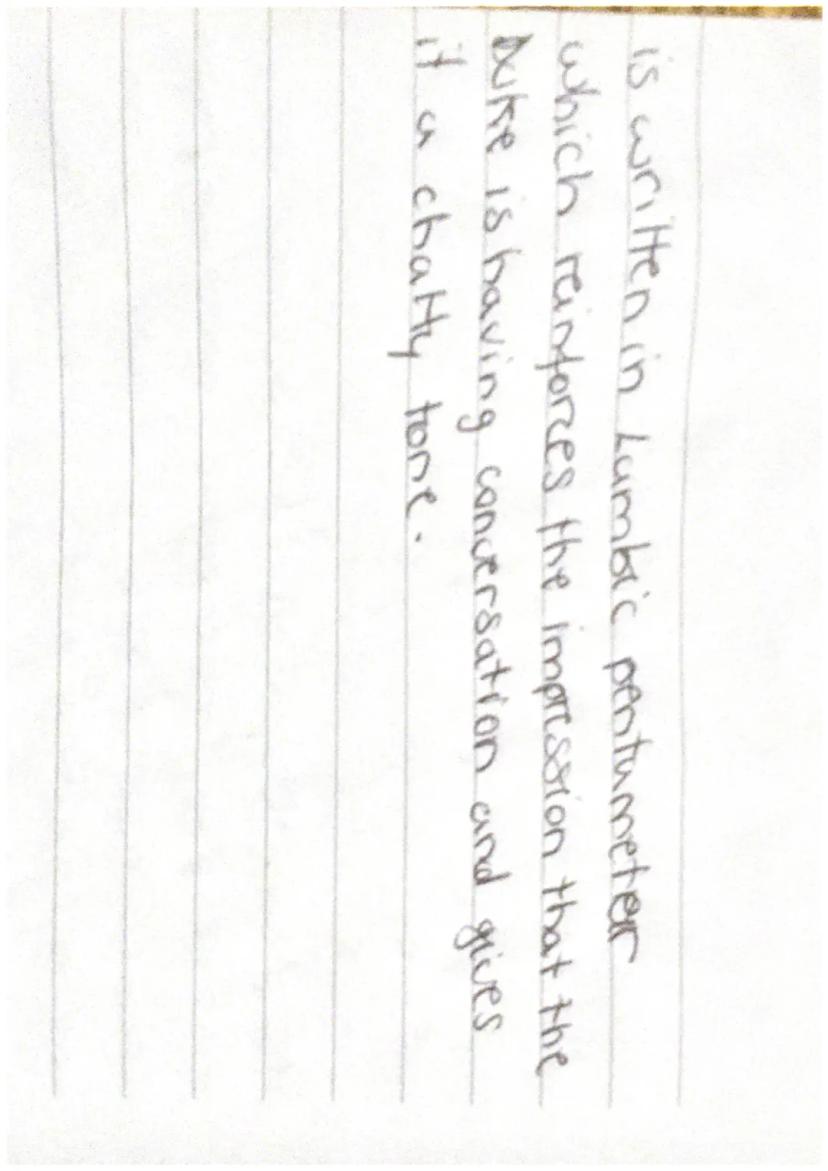 is written in Iambic pentameter
which reinforces the impression that the
Duke is having conversation and gives
it a chatty tone.